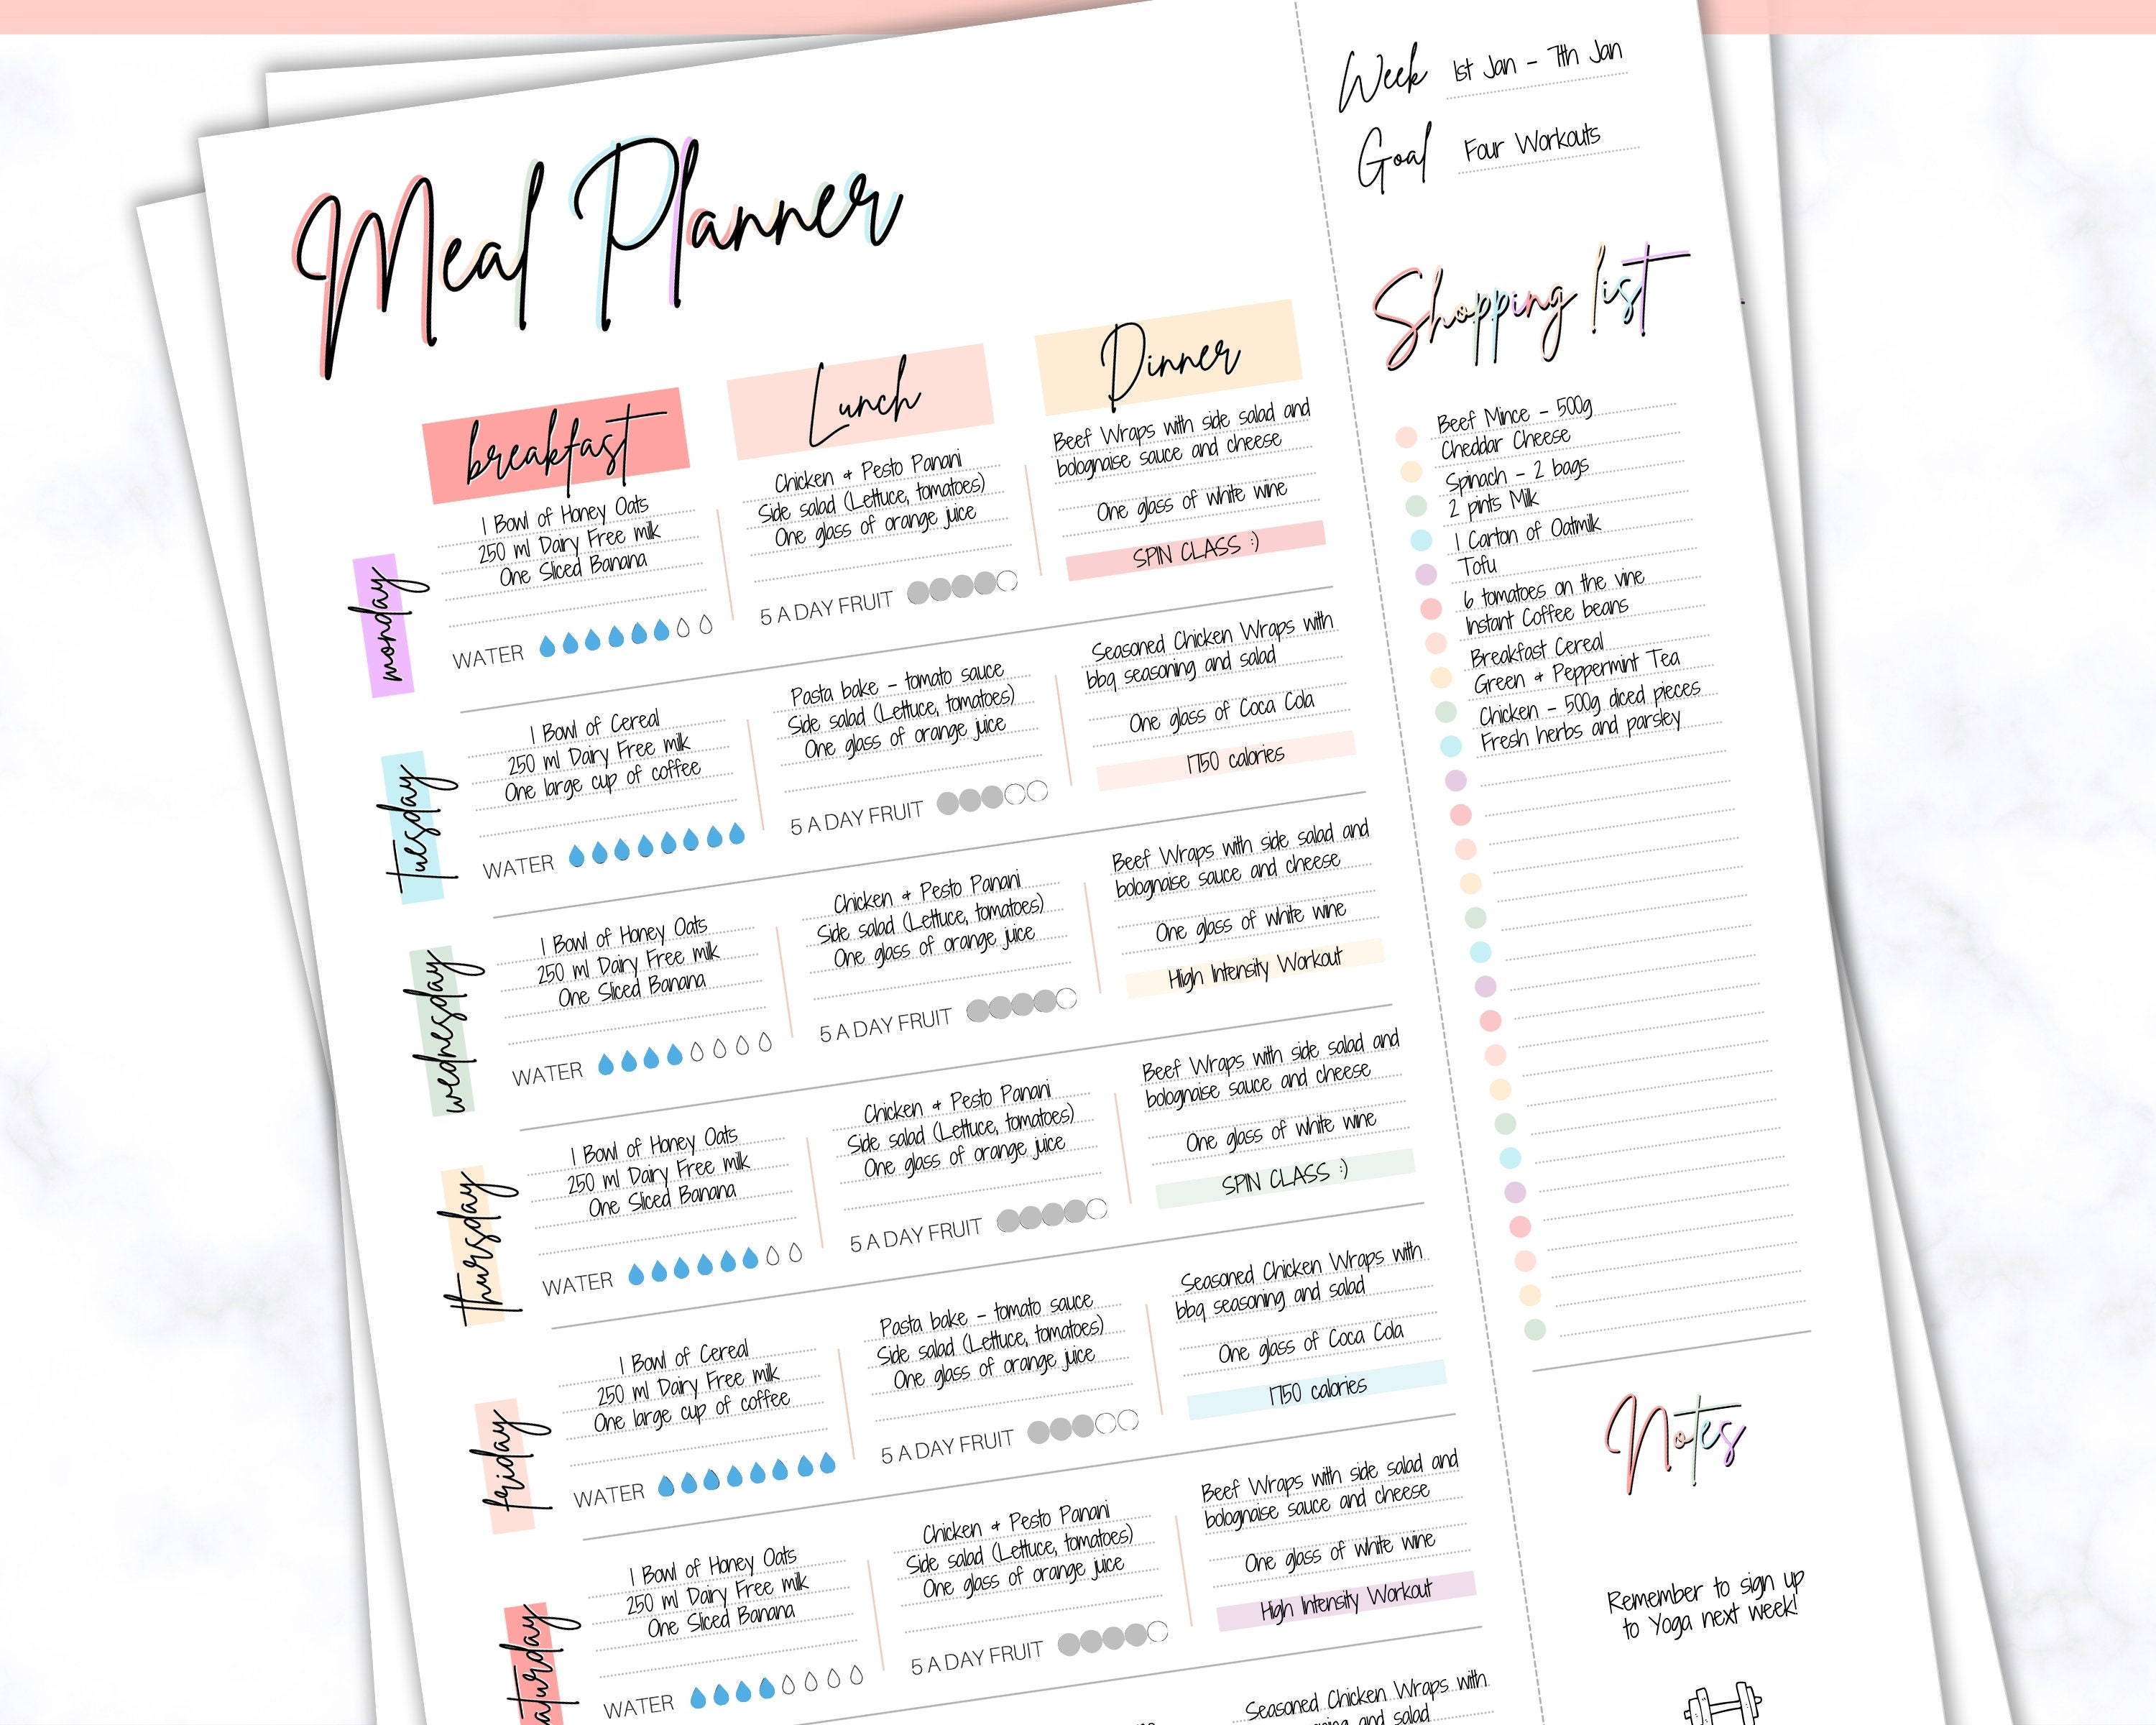 Meal Planner
Week 1st Jan - 7th Jan
Goal Four Workouts
breakfast
Lunch
Dinner
monday
1 Bowl of Honey Oats
250 ml Dairy Free milk
One Sliced Banana
WATER
Chicken & Pesto Panani
Side salad (Lettuce, tomatoes)
One glass of orange juice
5 A DAY FRUIT
Beef Wraps with side salad and
bolognaise sauce and cheese
One glass of white wine
SPIN CLASS :)
tuesday
1 Bowl of Cereal
250 ml Dairy Free milk
One large cup of coffee
WATER
Pasta bake - tomato sauce
Side salad (Lettuce, tomatoes)
One glass of orange juice
5 A DAY FRUIT
Seasoned Chicken Wraps with
bbq seasoning and salad
One glass of Coca Cola
1750 calories
wednesday
1 Bowl of Honey Oats
250 ml Dairy Free milk
One Sliced Banana
WATER
Chicken & Pesto Panani
Side salad (Lettuce, tomatoes)
One glass of orange juice
5 A DAY FRUIT
Beef Wraps with side salad and
bolognaise sauce and cheese
One glass of white wine
High Intensity Workout
thursday
1 Bowl of Honey Oats
250 ml Dairy Free milk
One Sliced Banana
WATER
Chicken & Pesto Panani
Side salad (Lettuce, tomatoes)
One glass of orange juice
5 A DAY FRUIT
Beef Wraps with side salad and
bolognaise sauce and cheese
One glass of white wine
SPIN CLASS :)
friday
1 Bowl of Cereal
250 ml Dairy Free milk
One large cup of coffee
WATER
Pasta bake - tomato sauce
Side salad (Lettuce, tomatoes)
One glass of orange juice
5 A DAY FRUIT
Seasoned Chicken Wraps with
bbq seasoning and salad
One glass of Coca Cola
1750 calories
aturday
1 Bowl of Honey Oats
250 ml Dairy Free milk
One Sliced Banana
WATER
Chicken & Pesto Panani
Side salad (Lettuce, tomatoes)
One glass of orange juice
5 A DAY FRUIT
Beef Wraps with side salad and
bolognaise sauce and cheese
One glass of white wine
High Intensity Workout
Seasoned Chicken Wraps with
and salad
Shopping list
Beef Mince - 500g
Cheddar Cheese
Spinach - 2 bags
2 pints Milk
1 Carton of Oatmilk
Tofu
6 tomatoes on the vine
Instant Coffee beans
Breakfast Cereal
Green & Peppermint Tea
Chicken - 500g diced pieces
Fresh herbs and parsley
Notes
Remember to sign up
to Yoga next week!